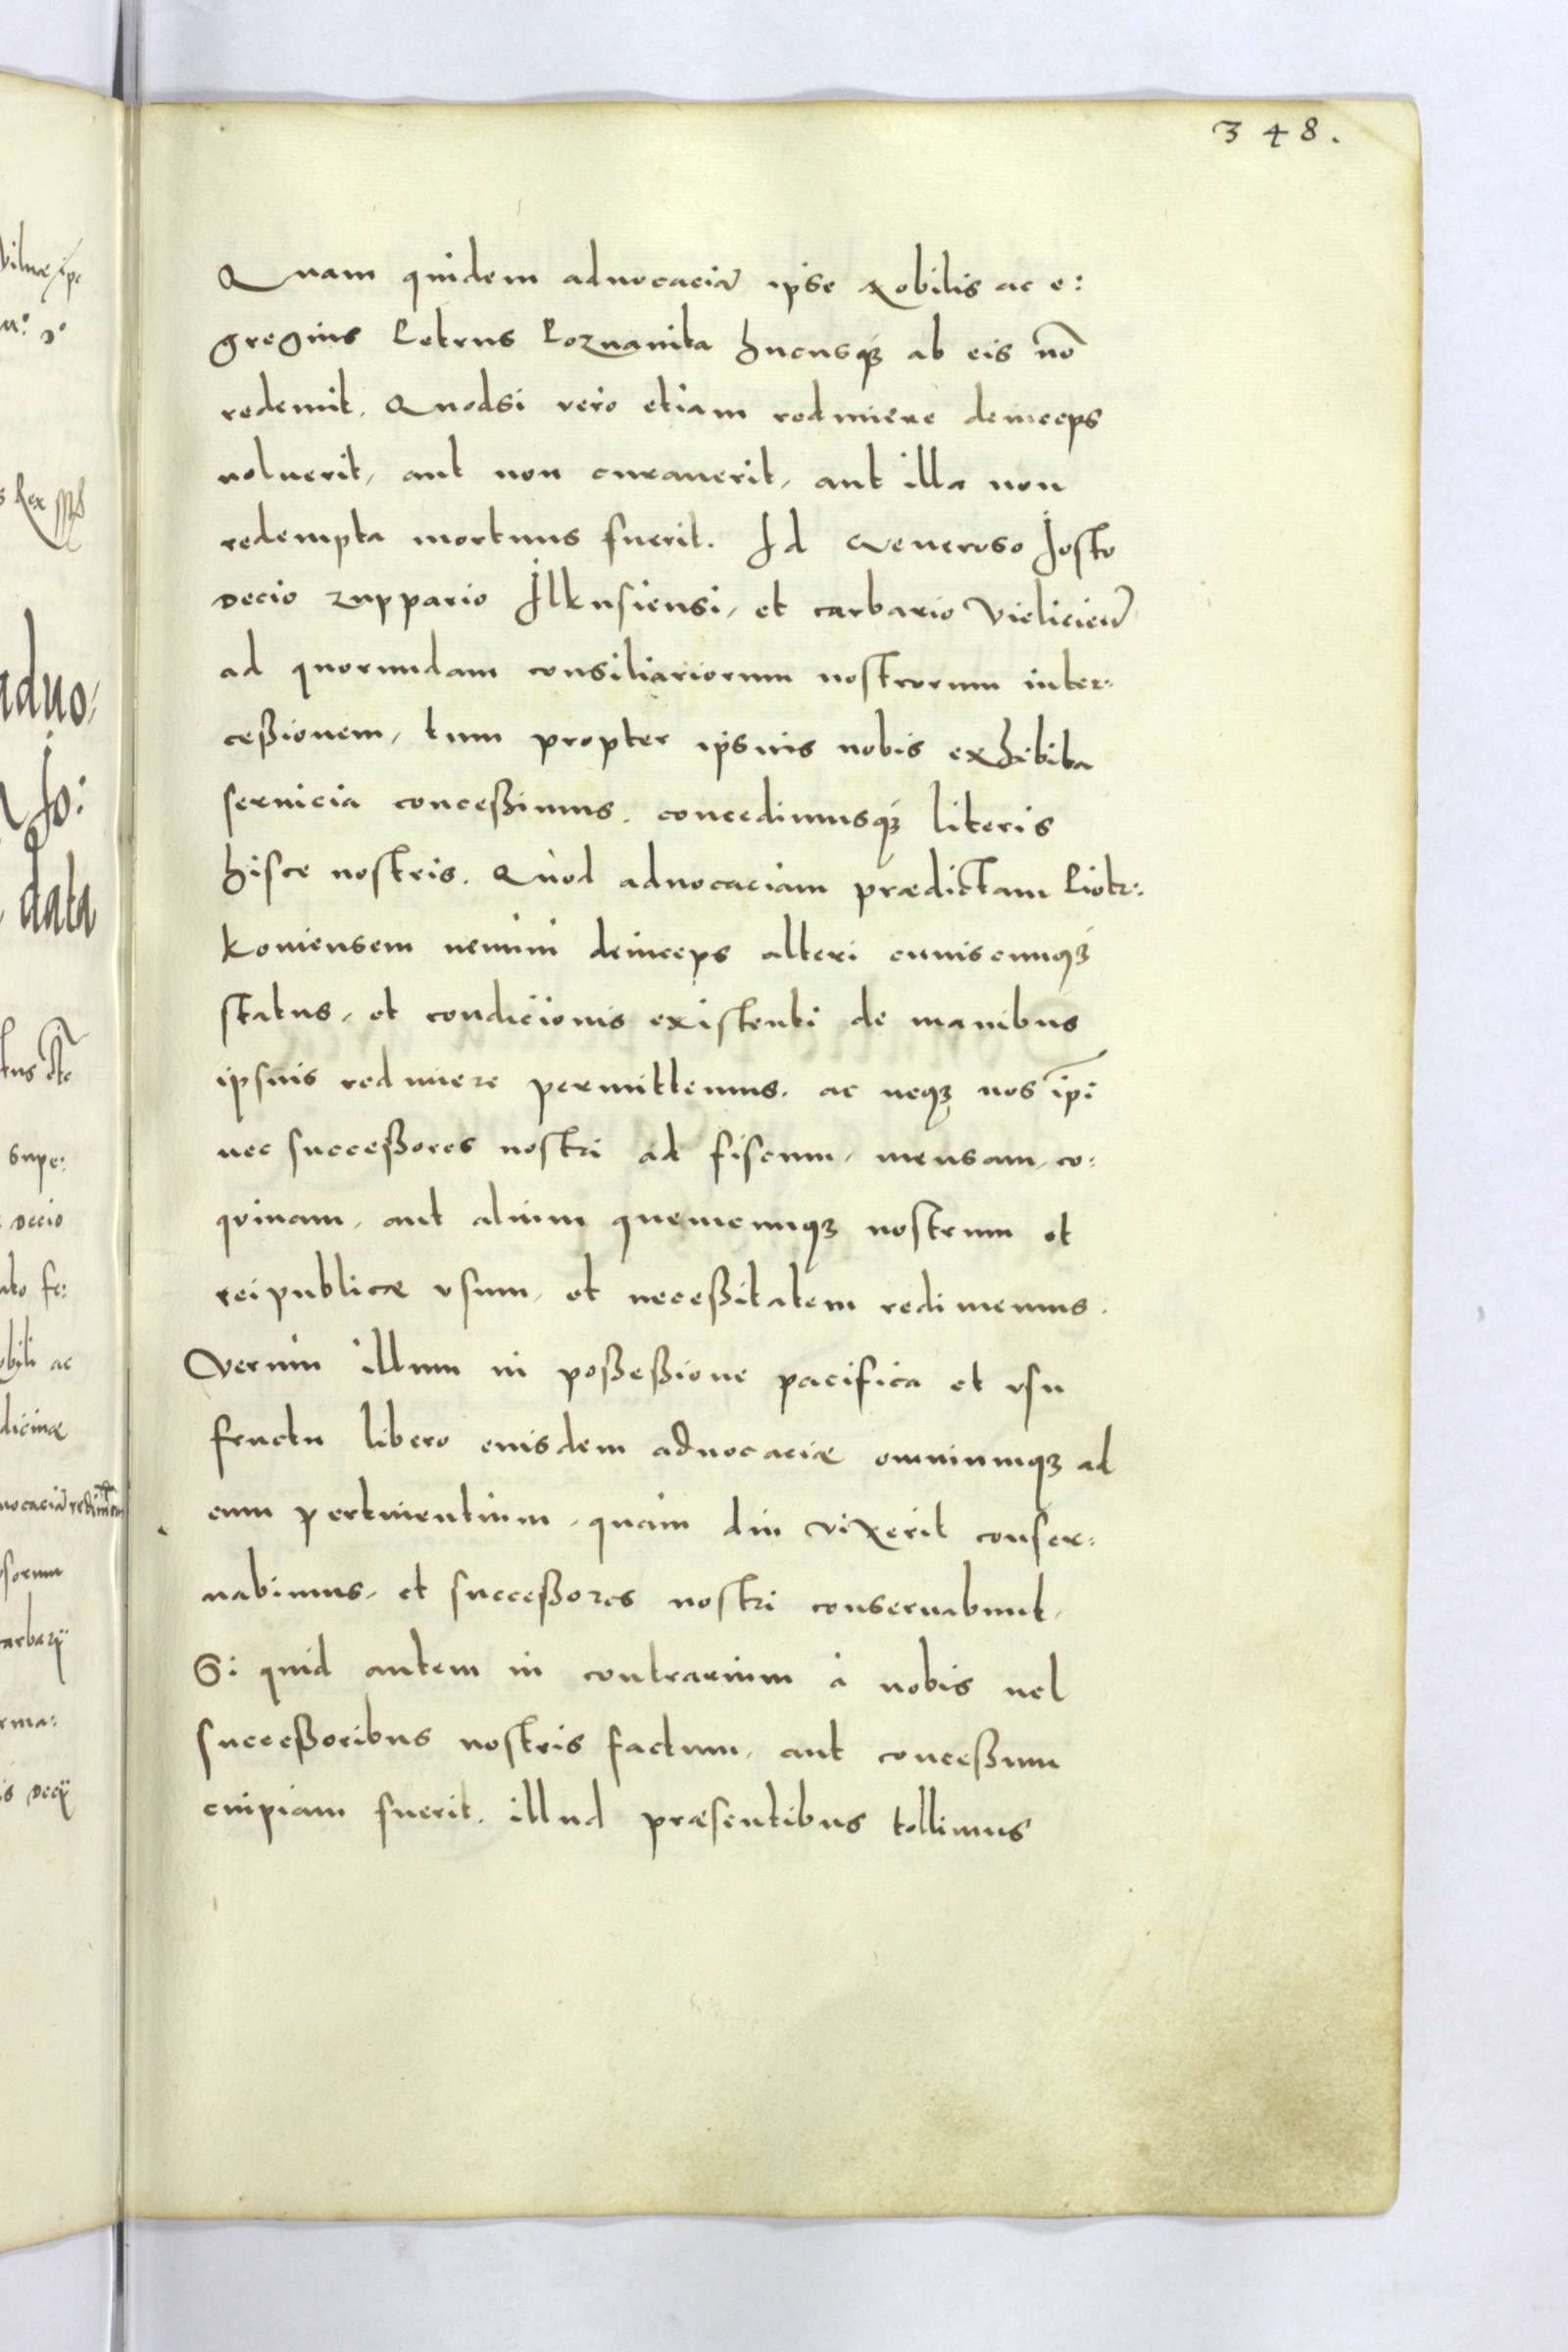 348.
Quam quidem aduocaciã ipse Nobilis ac e:
gregius Petrus Poznanita hucusqꝫ ab eis nõ
redemit. Quodsi vero etiam redimere deinceps
noluerit, aut non curauerit, aut illa non
redempta mortuus fuerit. Id Generoso Josto
Decio zuppario Ilkusiensi, et carbario Vielicieñ
ad quorundam consiliariorum nostrorum inter:
ceßionem, tum propter ipsius nobis exhibita
seruicia conceßimus. concedimusqꝫ literis
hisce nostris. Quod aduocaciam prædictam Piotr:
koniensem nemini deinceps alteri cuiuscunqꝫ
status, et condicionis existenti de manibus
ipsius redimere permittemus. ac neqꝫ nos ipi
nec succeßores nostri ad fiscum, mensam, co:
quinam, aut alium quemcunqꝫ nostrum et
reipublicæ vsum, et neceßitatem redimemus.
Verum illum in poßeßione pacifica et vsu
fructu libero eiusdem aduocaciæ omniumqꝫ ad
eum pertinentium, quam diu vixerit conser:
uabimus, et succeßores nostri conseruabunt,
Si quid autem in contrarium à nobis uel
succeßoribus nostris factum, aut conceßum
cuipiam fuerit. illud præsentibus tollimus
aduo:
Jo:
data
s Rex
Supe:
Decio
fe:
ac
dicinæ
rma: